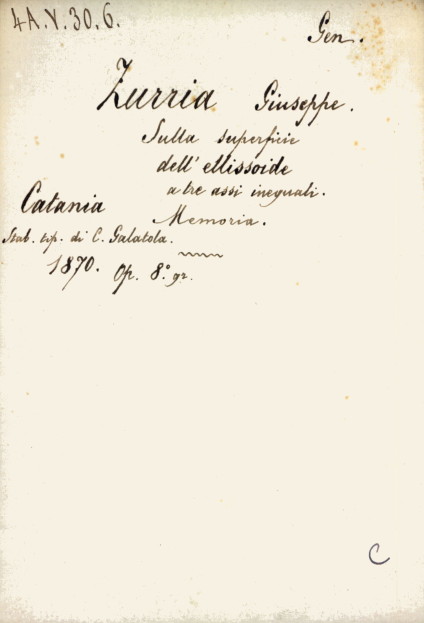 4A.V.30.6.
Gen.
Zurria Giuseppe.
Sulla superficie
dell' ellissoide
a tre assi ineguali.
Catania
Memoria.
Stab. tip. di C. Galatola.
1870. Op. 8.° gr.
C